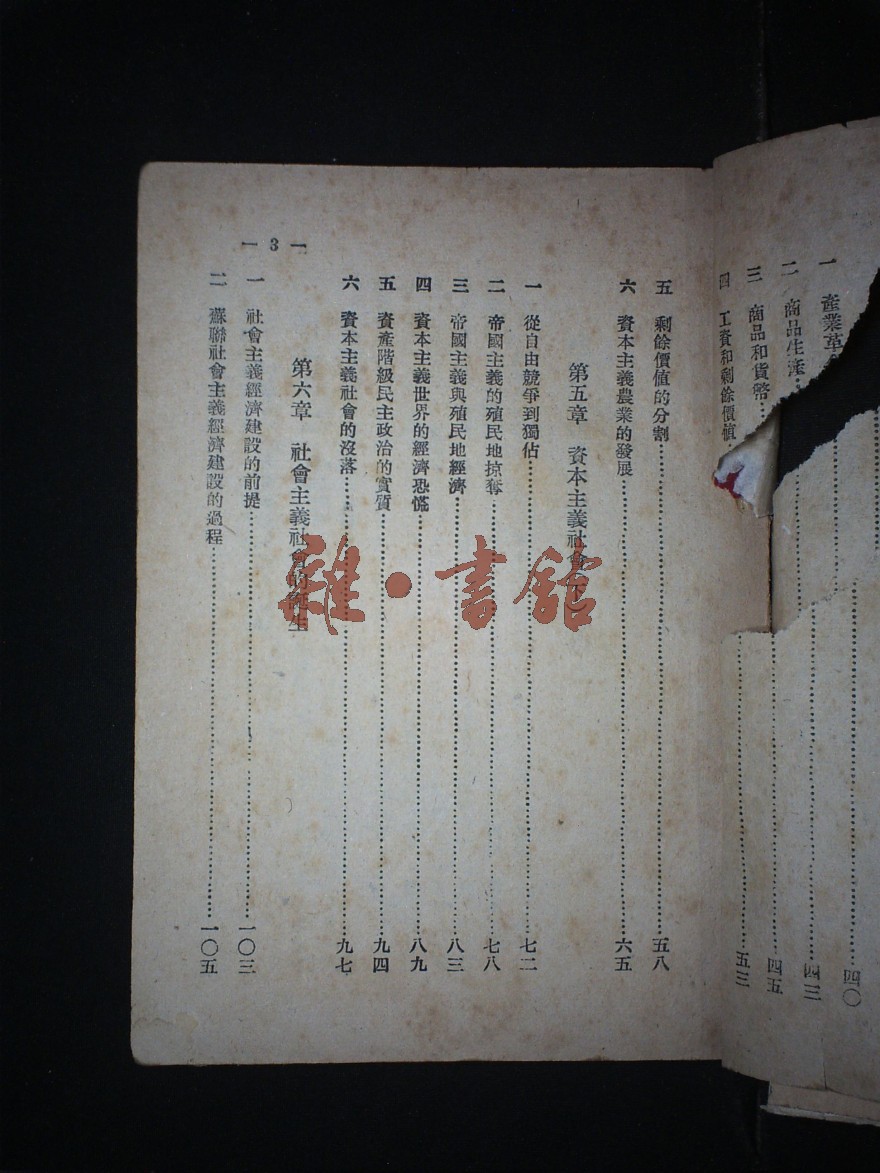 一 產業革
二 商品生產……四三
三 商品和貨幣……四五
四 工資和剩餘價值……五三
四〇
五 剩餘價值的分割……五八
六 資本主義農業的發展……六五
第五章 資本主義社會(下)
一 從自由競爭到獨佔……七二
二 帝國主義的殖民地掠奪……七八
三 帝國主義與殖民地經濟……八三
四 資本主義世界的經濟恐慌……八九
五 資產階級民主政治的實質……九四
六 資本主義社會的沒落……九七
第六章 社會主義社會的誕生
一 社會主義經濟建設的前提……一〇三
二 蘇聯社會主義經濟建設的過程……一〇五
— 3 —
雜·書館